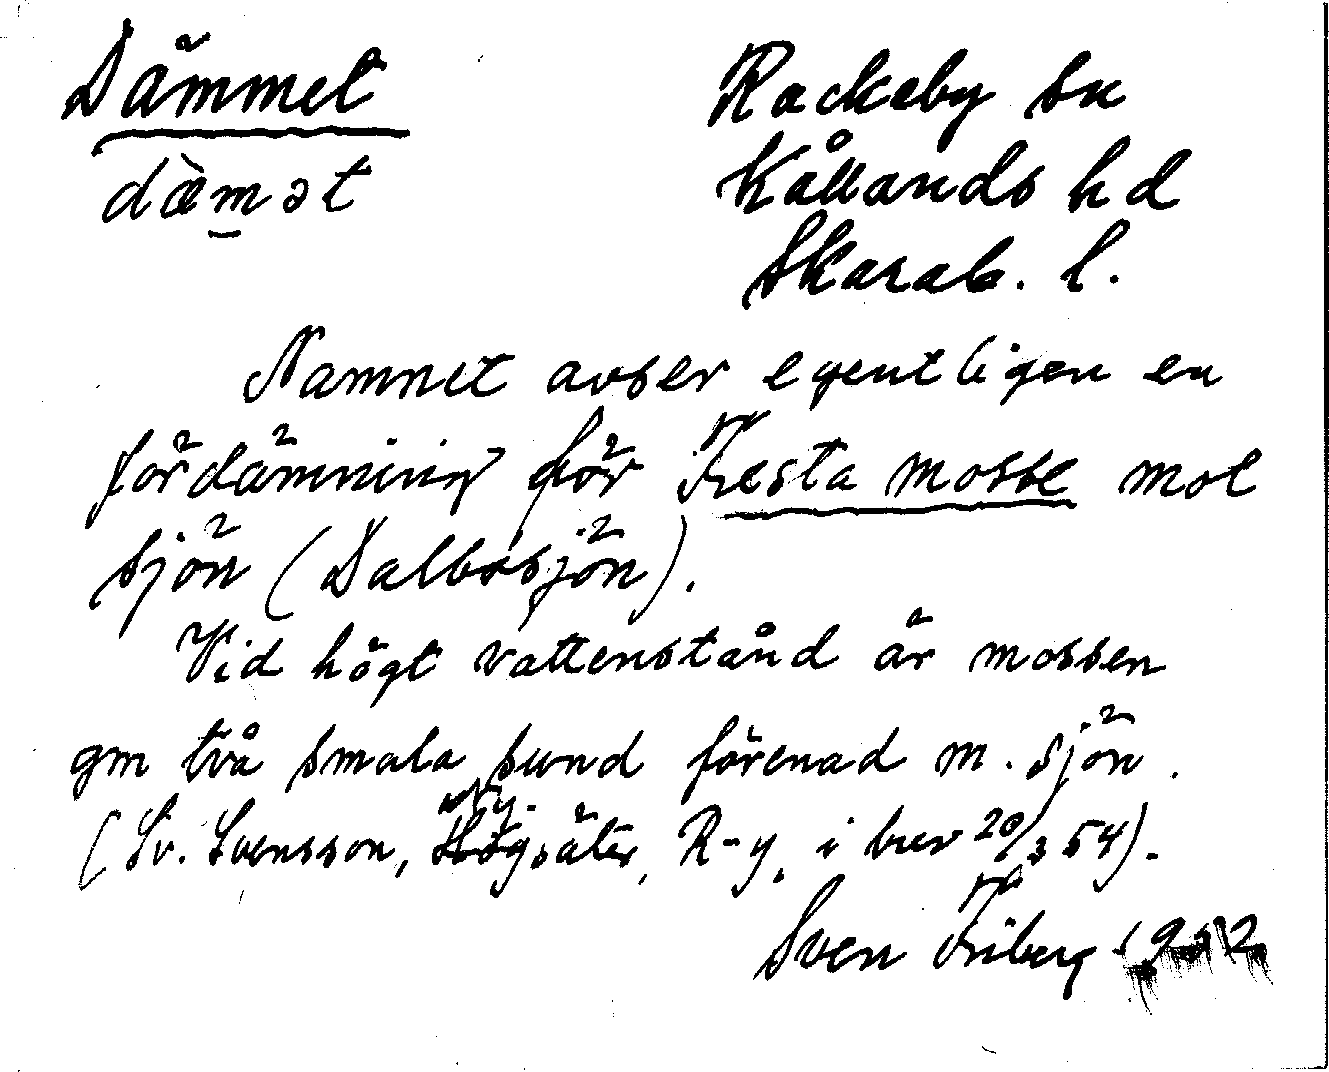 Dämmet
dæ̀m̲ət
Rackeby sn
Kållands hd
Skarab. l.
Namnet avser egentligen en
fördämning för Fresta mosse mot
sjön (Dalbosjön).
Vid högt vattenstånd är mossen
gm två smala sund förenad m. sjön.
(Sv. Svensson, säter, R-y, i brev 20/3 54).
Sven Friberg